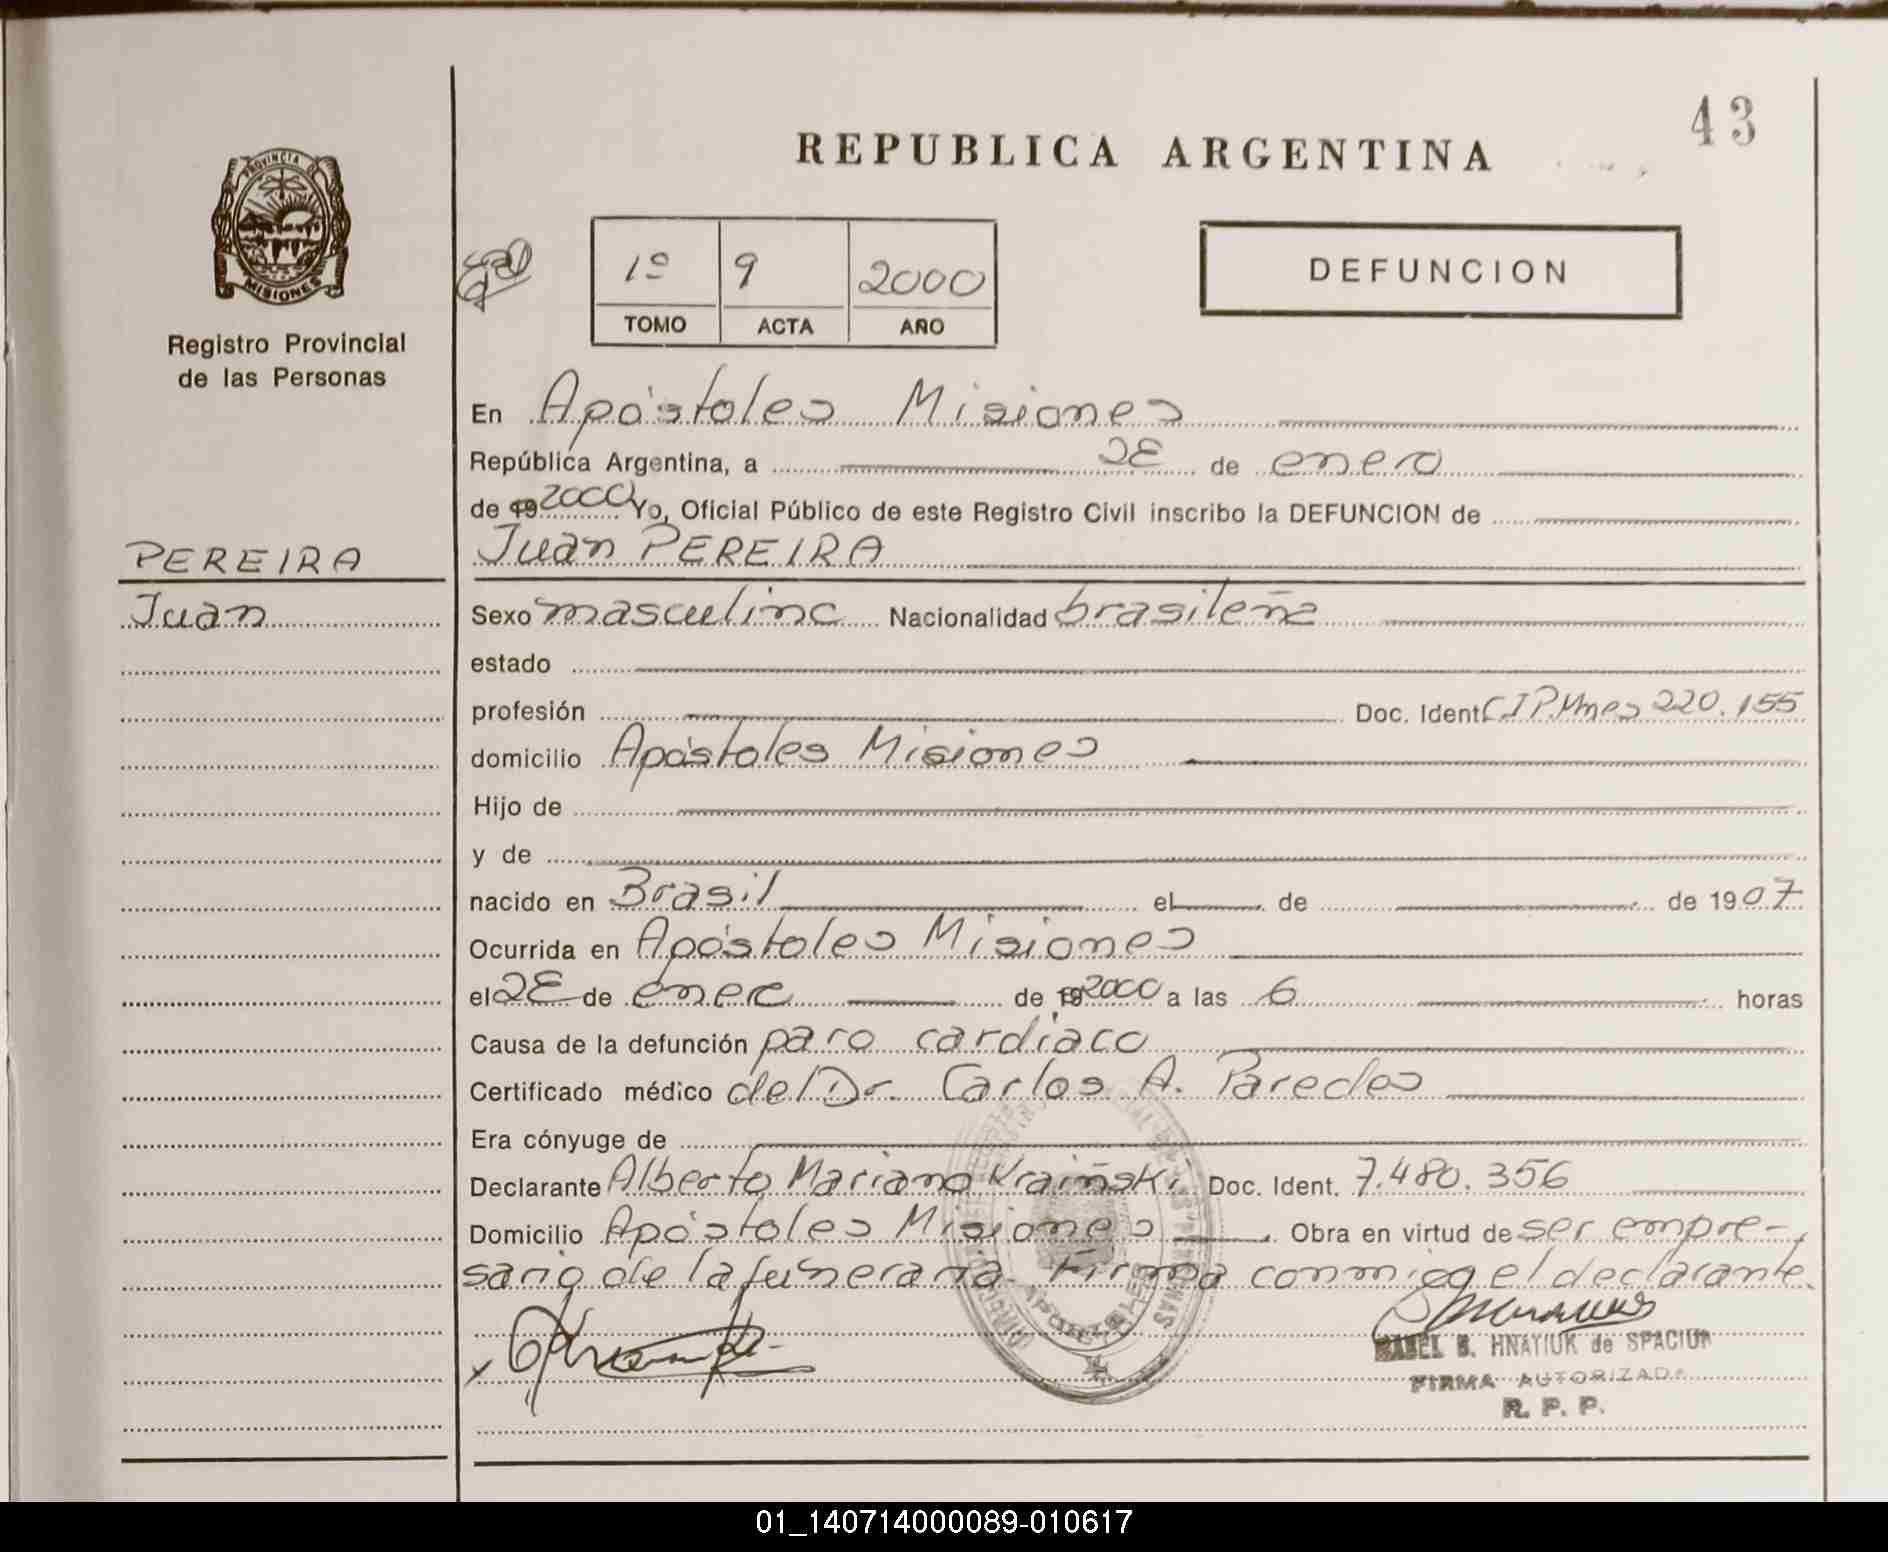 43
REPUBLICA ARGENTINA
PROVINCIA D
MISIONES
Registro Provincial
de las Personas
1º 9 2000
TOMO ACTA AÑO
DEFUNCION
En Apóstoles Misiones
República Argentina, a 28 de enero
de 19 2000 Yo, Oficial Público de este Registro Civil inscribo la DEFUNCION de
PEREIRA
Juan PEREIRA
Juan
Sexo masculino Nacionalidad brasileña
estado
profesión Doc. Ident. C.I.P.Mnes 220.155
domicilio Apóstoles Misiones
Hijo de
y de
nacido en Brasil el de de 1907
Ocurrida en Apóstoles Misiones
el 28 de enero de 19 2000 a las 6 horas
Causa de la defunción paro cardíaco
Certificado médico del Dr. Carlos A. Paredes
Era cónyuge de
Declarante Alberto Mariano Kraiñski Doc. Ident. 7.480.356
Domicilio Apóstoles Misiones . Obra en virtud de ser empre-
sario de la funeraria. Firma conmigo el declarante.
B. HNATIUK de SPACIUK
FIRMA AUTORIZADA
R. P. P.
APOSTOLES
01_140714000089-010617